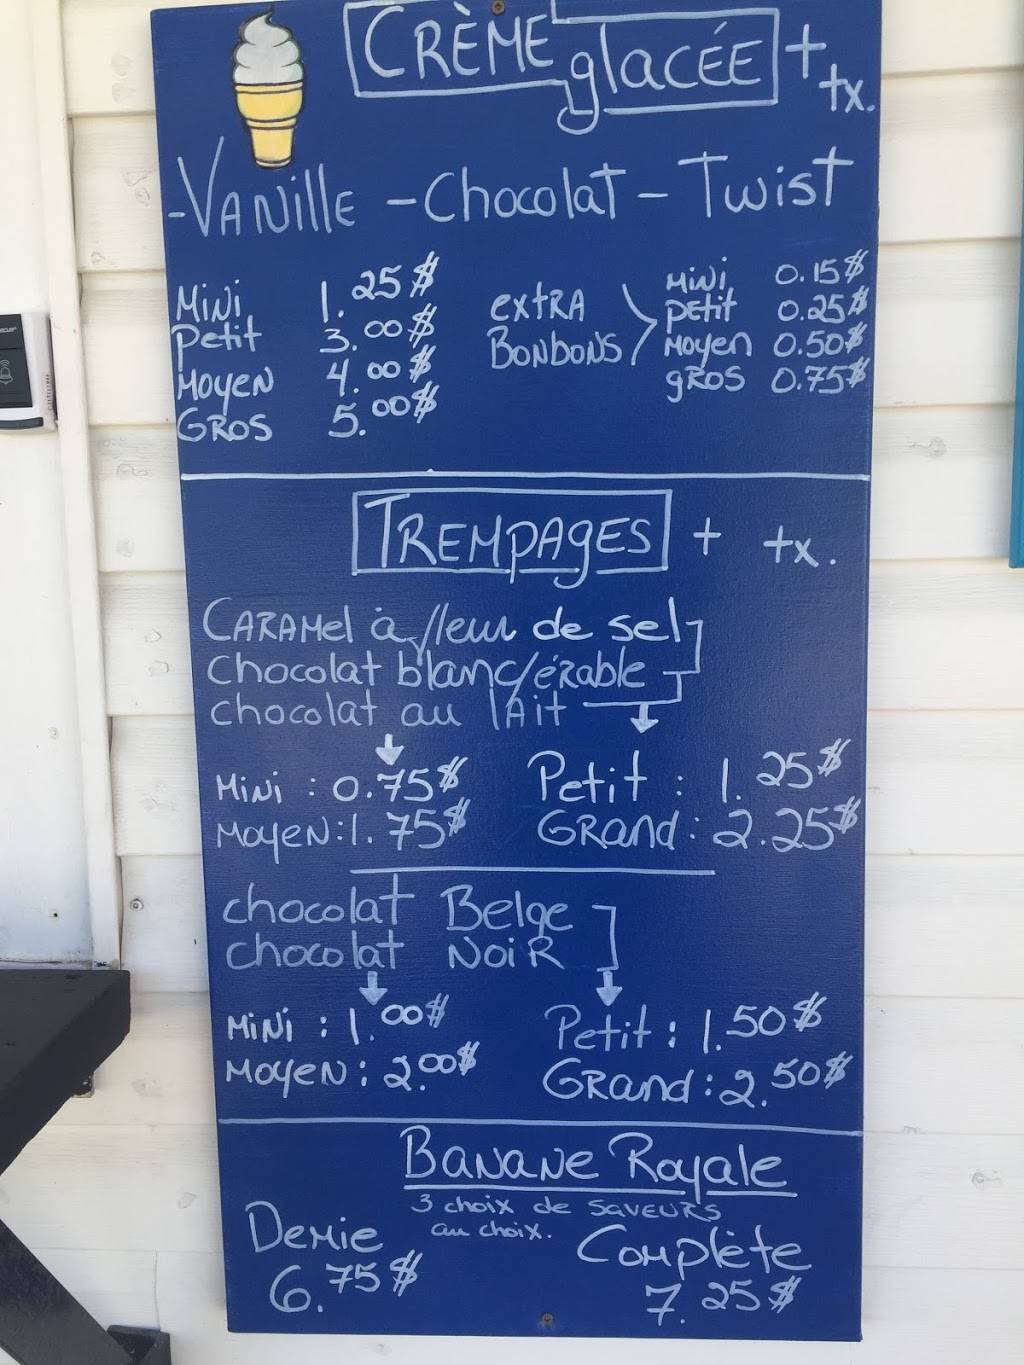 CRÈME glacée + tx.
- Vanille - Chocolat - Twist
Mini 1.25$
Petit 3.00$
Moyen 4.00$
Gros 5.00$
extra Bonbons
Mini 0.15$
Petit 0.25$
Moyen 0.50$
gros 0.75$
Trempages + tx.
Caramel à fleur de sel
chocolat blanc/érable
chocolat au lait
Mini : 0.75$ Petit : 1.25$
Moyen : 1.75$ Grand : 2.25$
chocolat Belge
chocolat Noir
Mini : 1.00$ Petit : 1.50$
Moyen : 2.00$ Grand : 2.50$
Banane Royale
3 choix de saveurs
au choix.
Demie Complète
6.75$ 7.25$